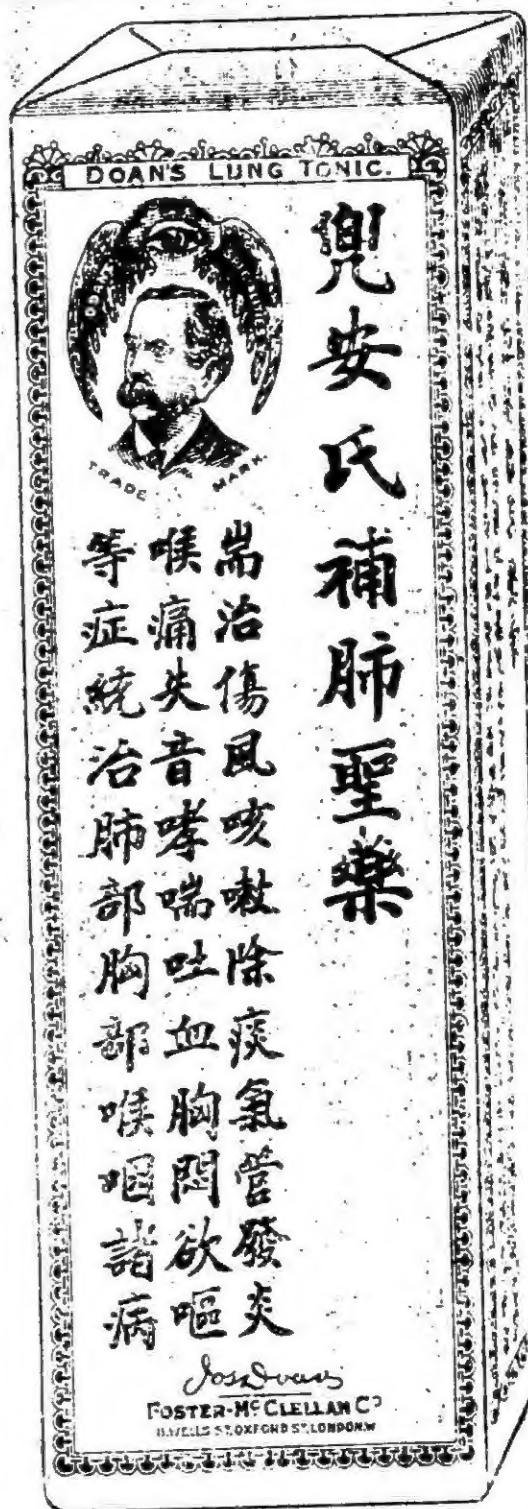 DOAN'S LUNG TONIC.
兜安氏補肺聖藥
TRADE MARK
耑治傷風咳嗽除痰氣管發炎
喉痛失音哮喘吐血胸悶欲嘔
等症統治肺部胸部喉咽諸病
Jos. Doan
FOSTER-McCLELLAN Co
WELLS ST. OXFORD ST. LONDON.W